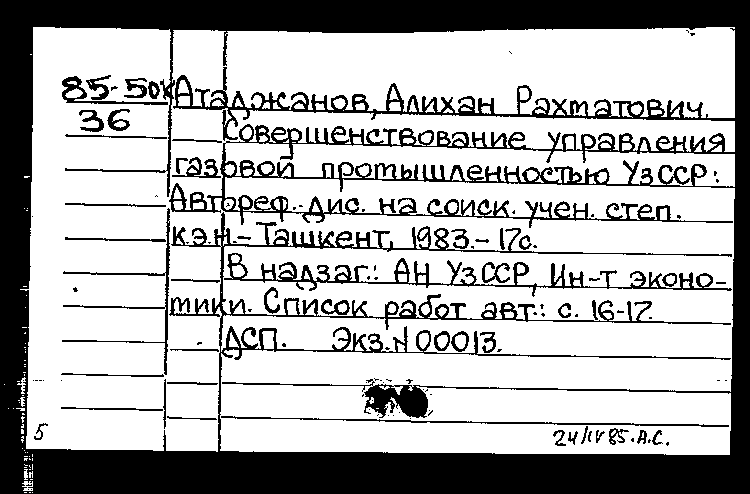 85-50к Атаджанов, Алихан Рахматович.
36 Совершенствование управления
газовой промышленностью УзССР:
Автореф. дис. на соиск. учен. степ.
к.э.н. - Ташкент, 1983. - 17с.
В надзаг.: АН УзССР, Ин-т эконо-
мики. Список работ авт.: с. 16-17.
ДСП. Экз.N 00013.
5 24/IV 85. А.С.